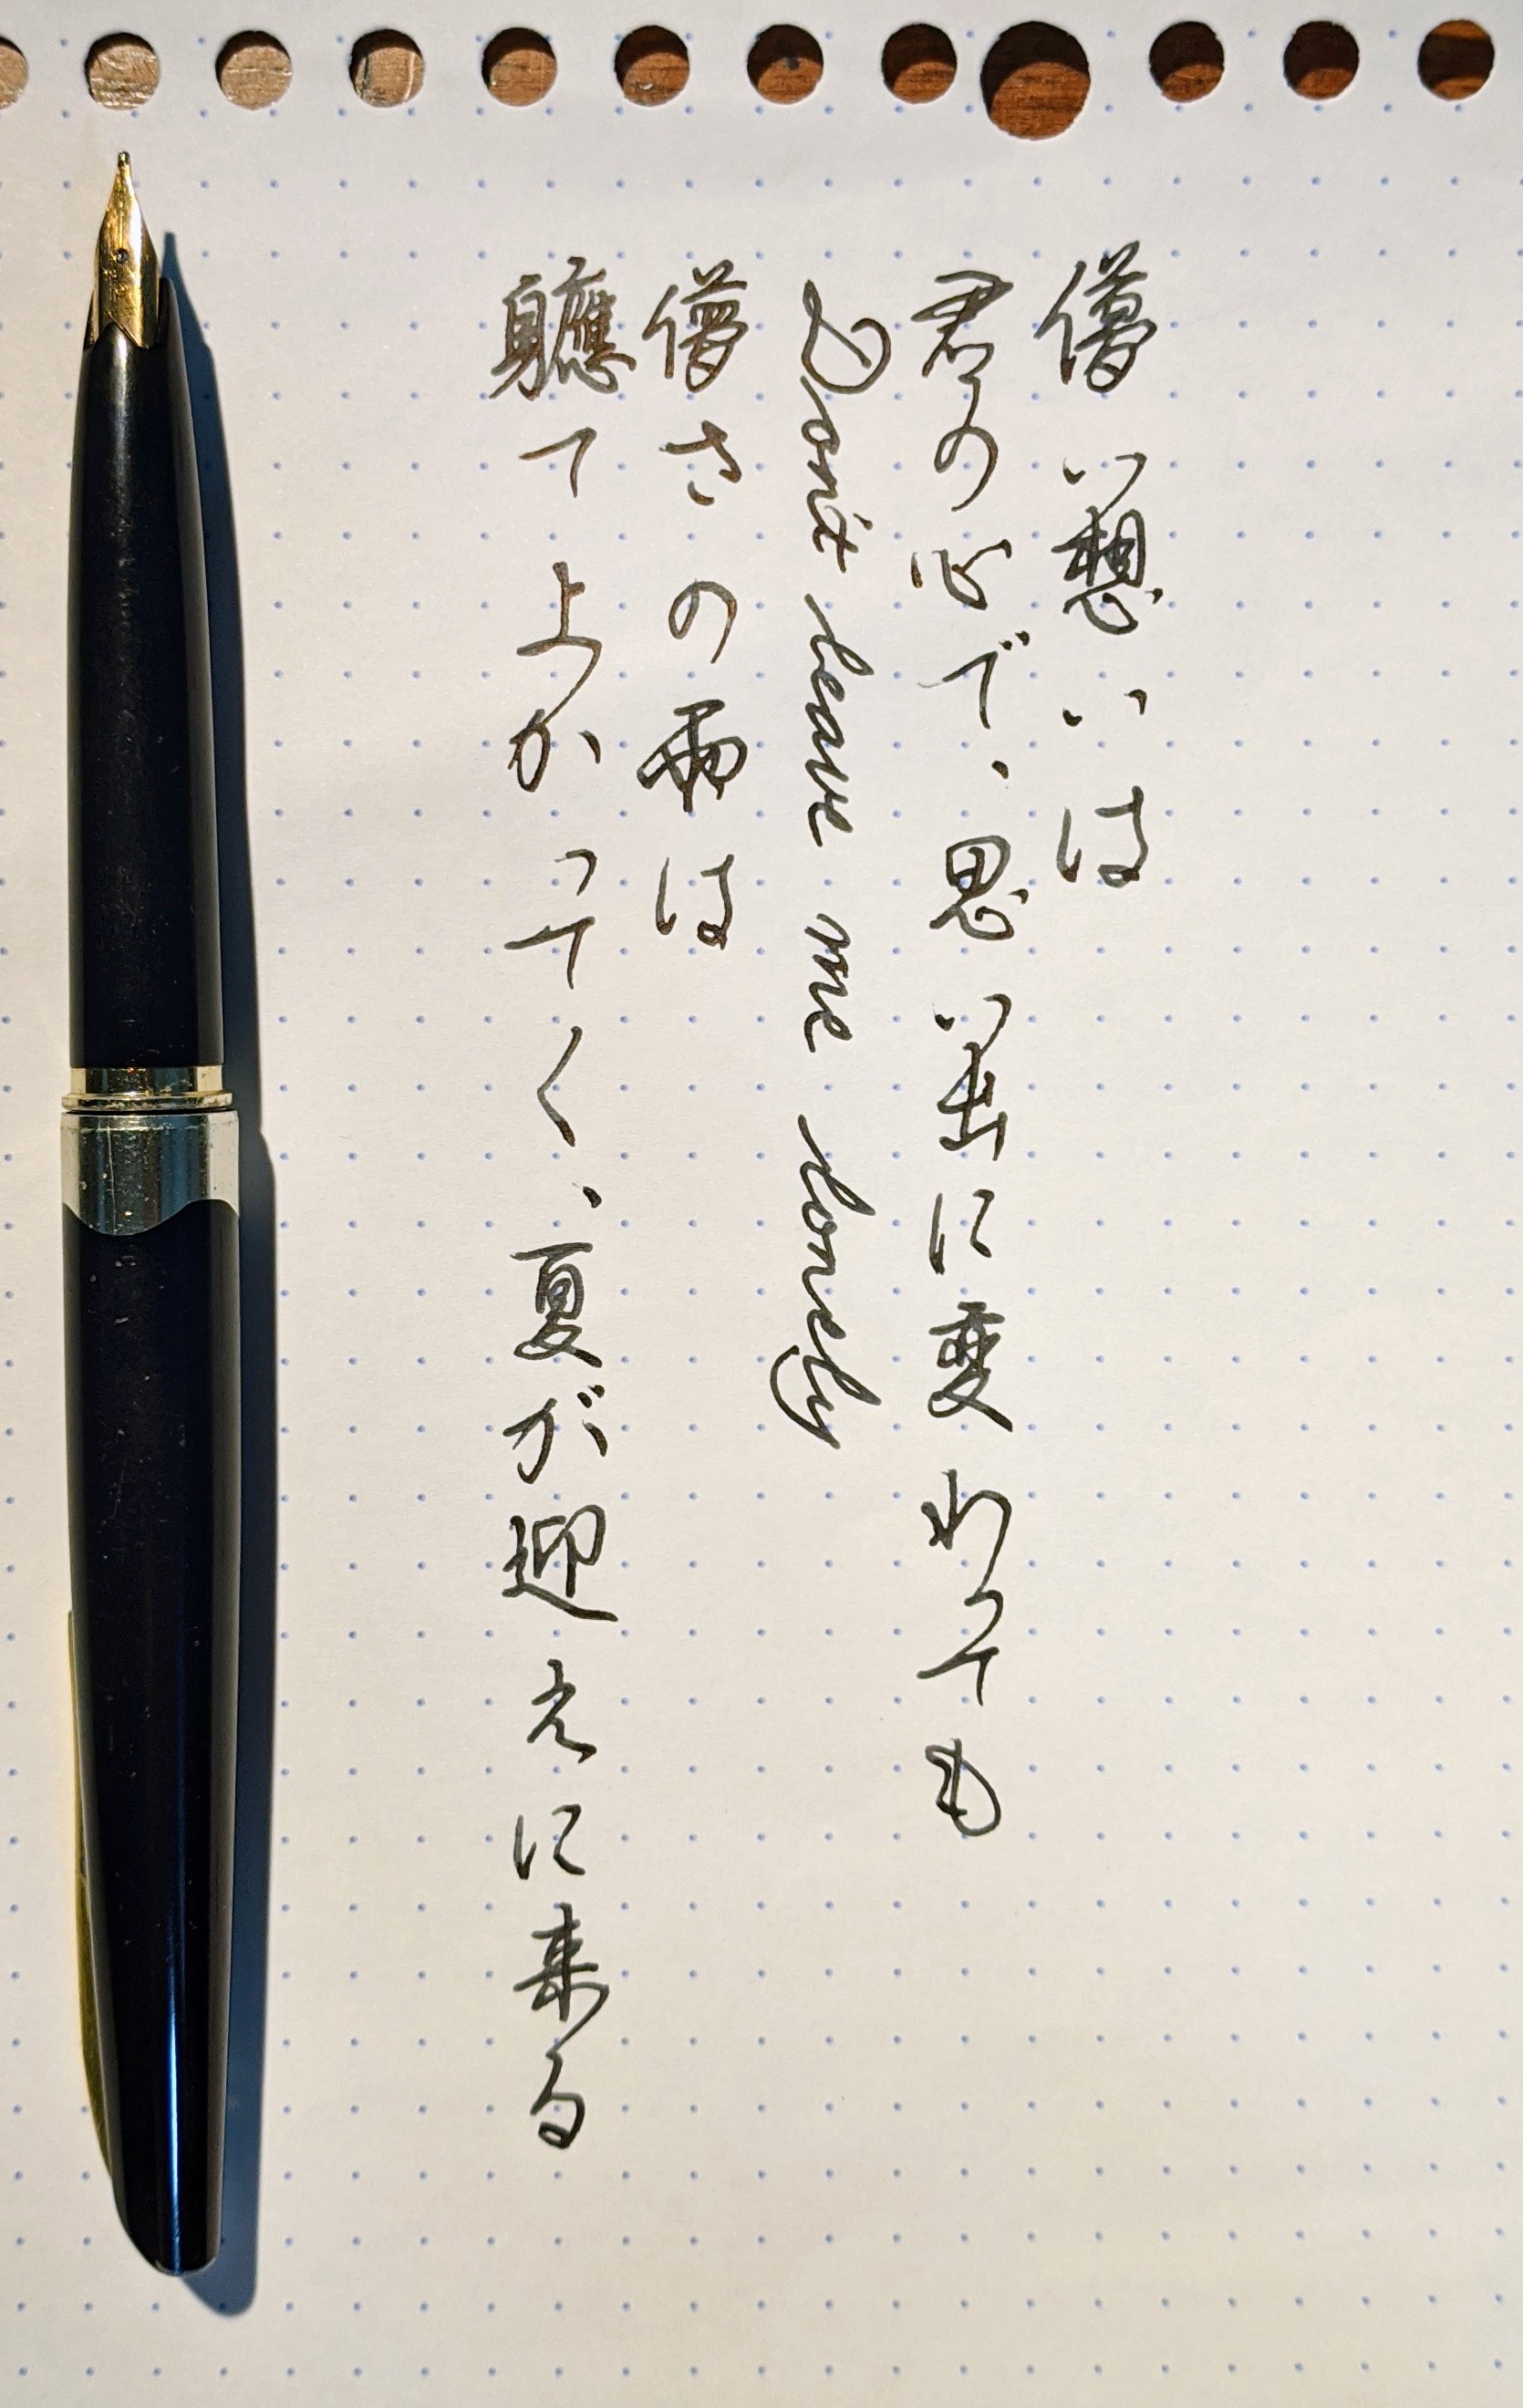 儚い想いは
君の心で、思い出に変わっても
Don't leave me lonely
儚さの雨は
軈て上かってく、夏が迎えに来る